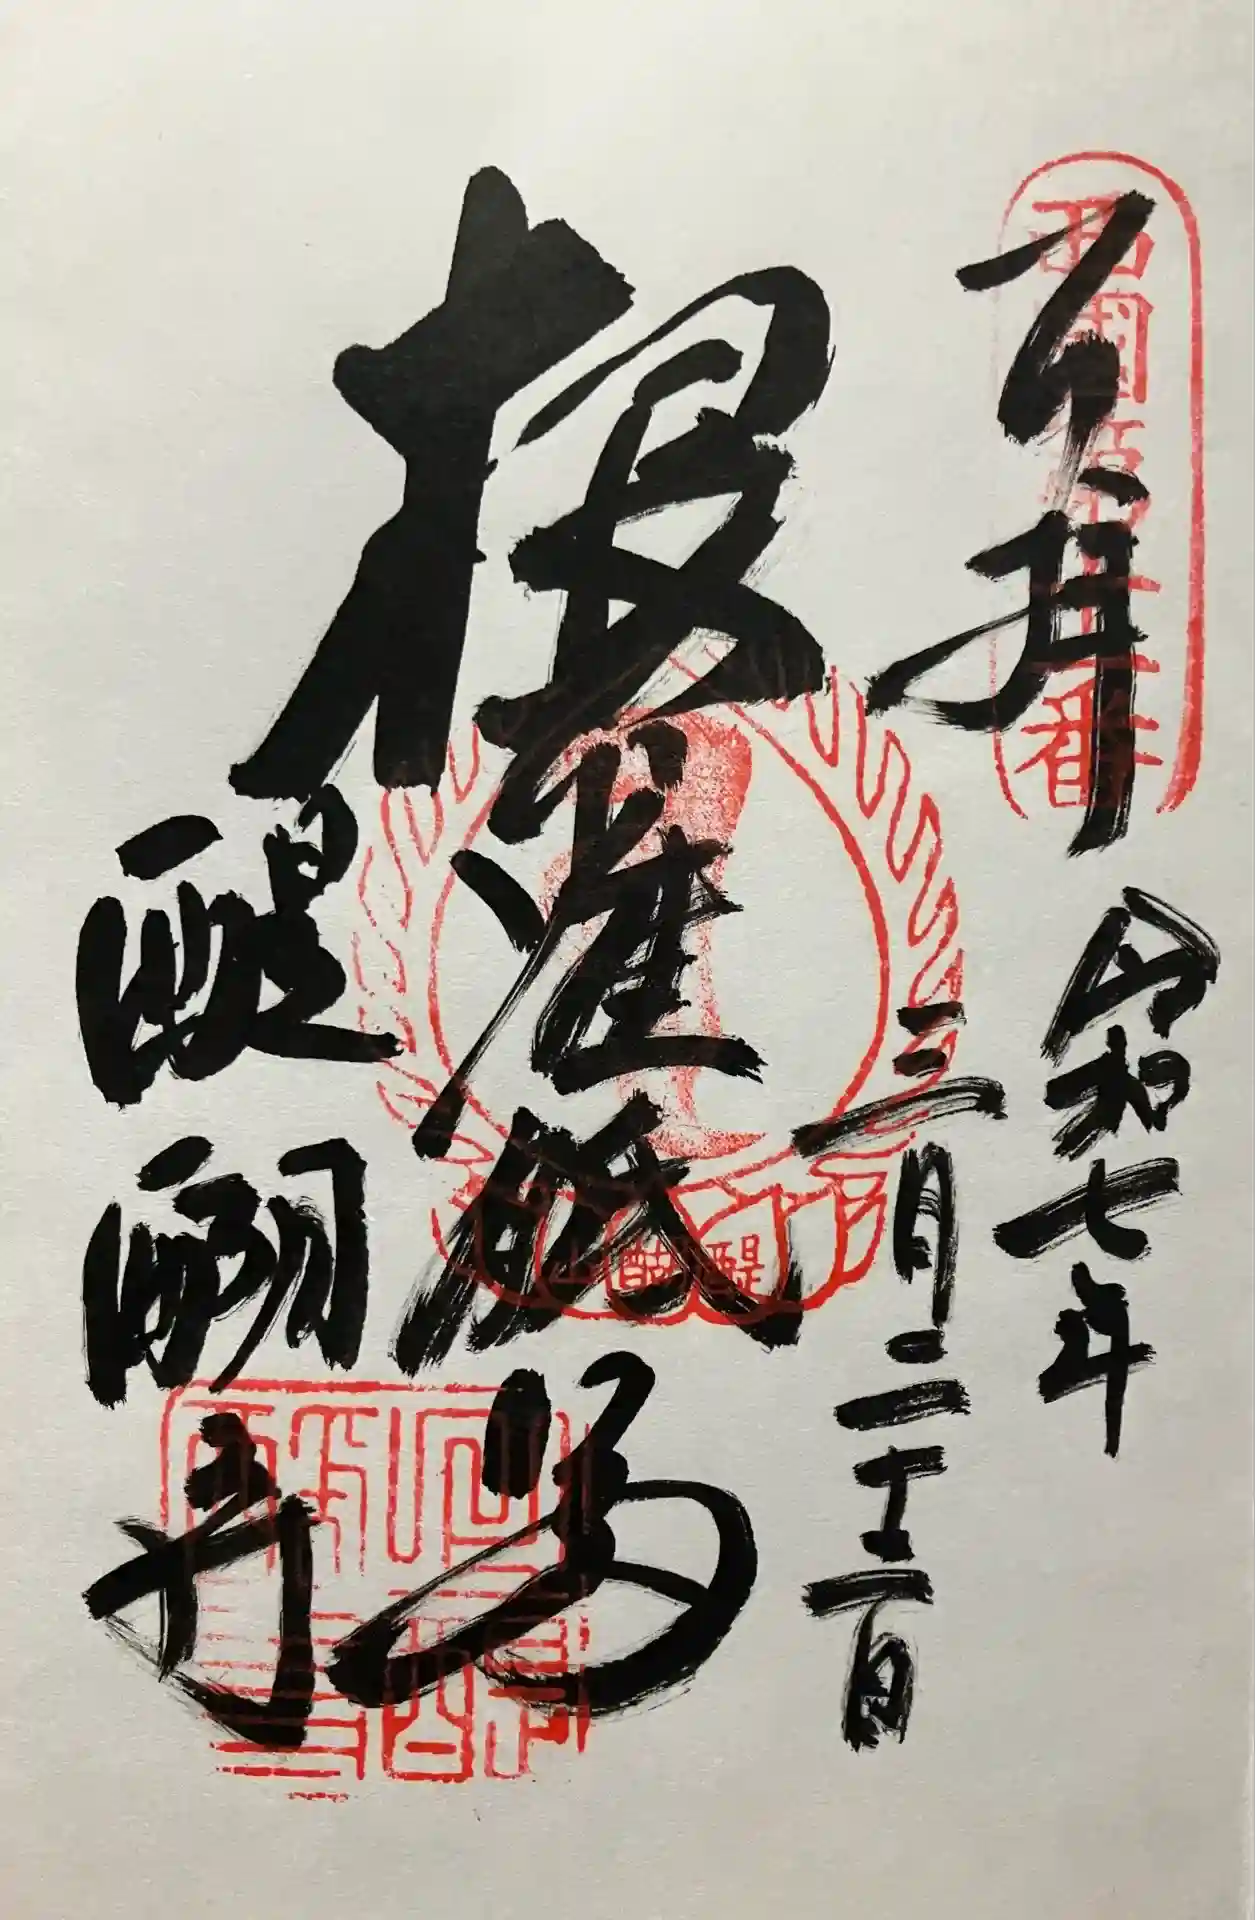 西國第十一番
奉拝
令和七年
三月二十二日
准胝
醍醐山
醍醐寺